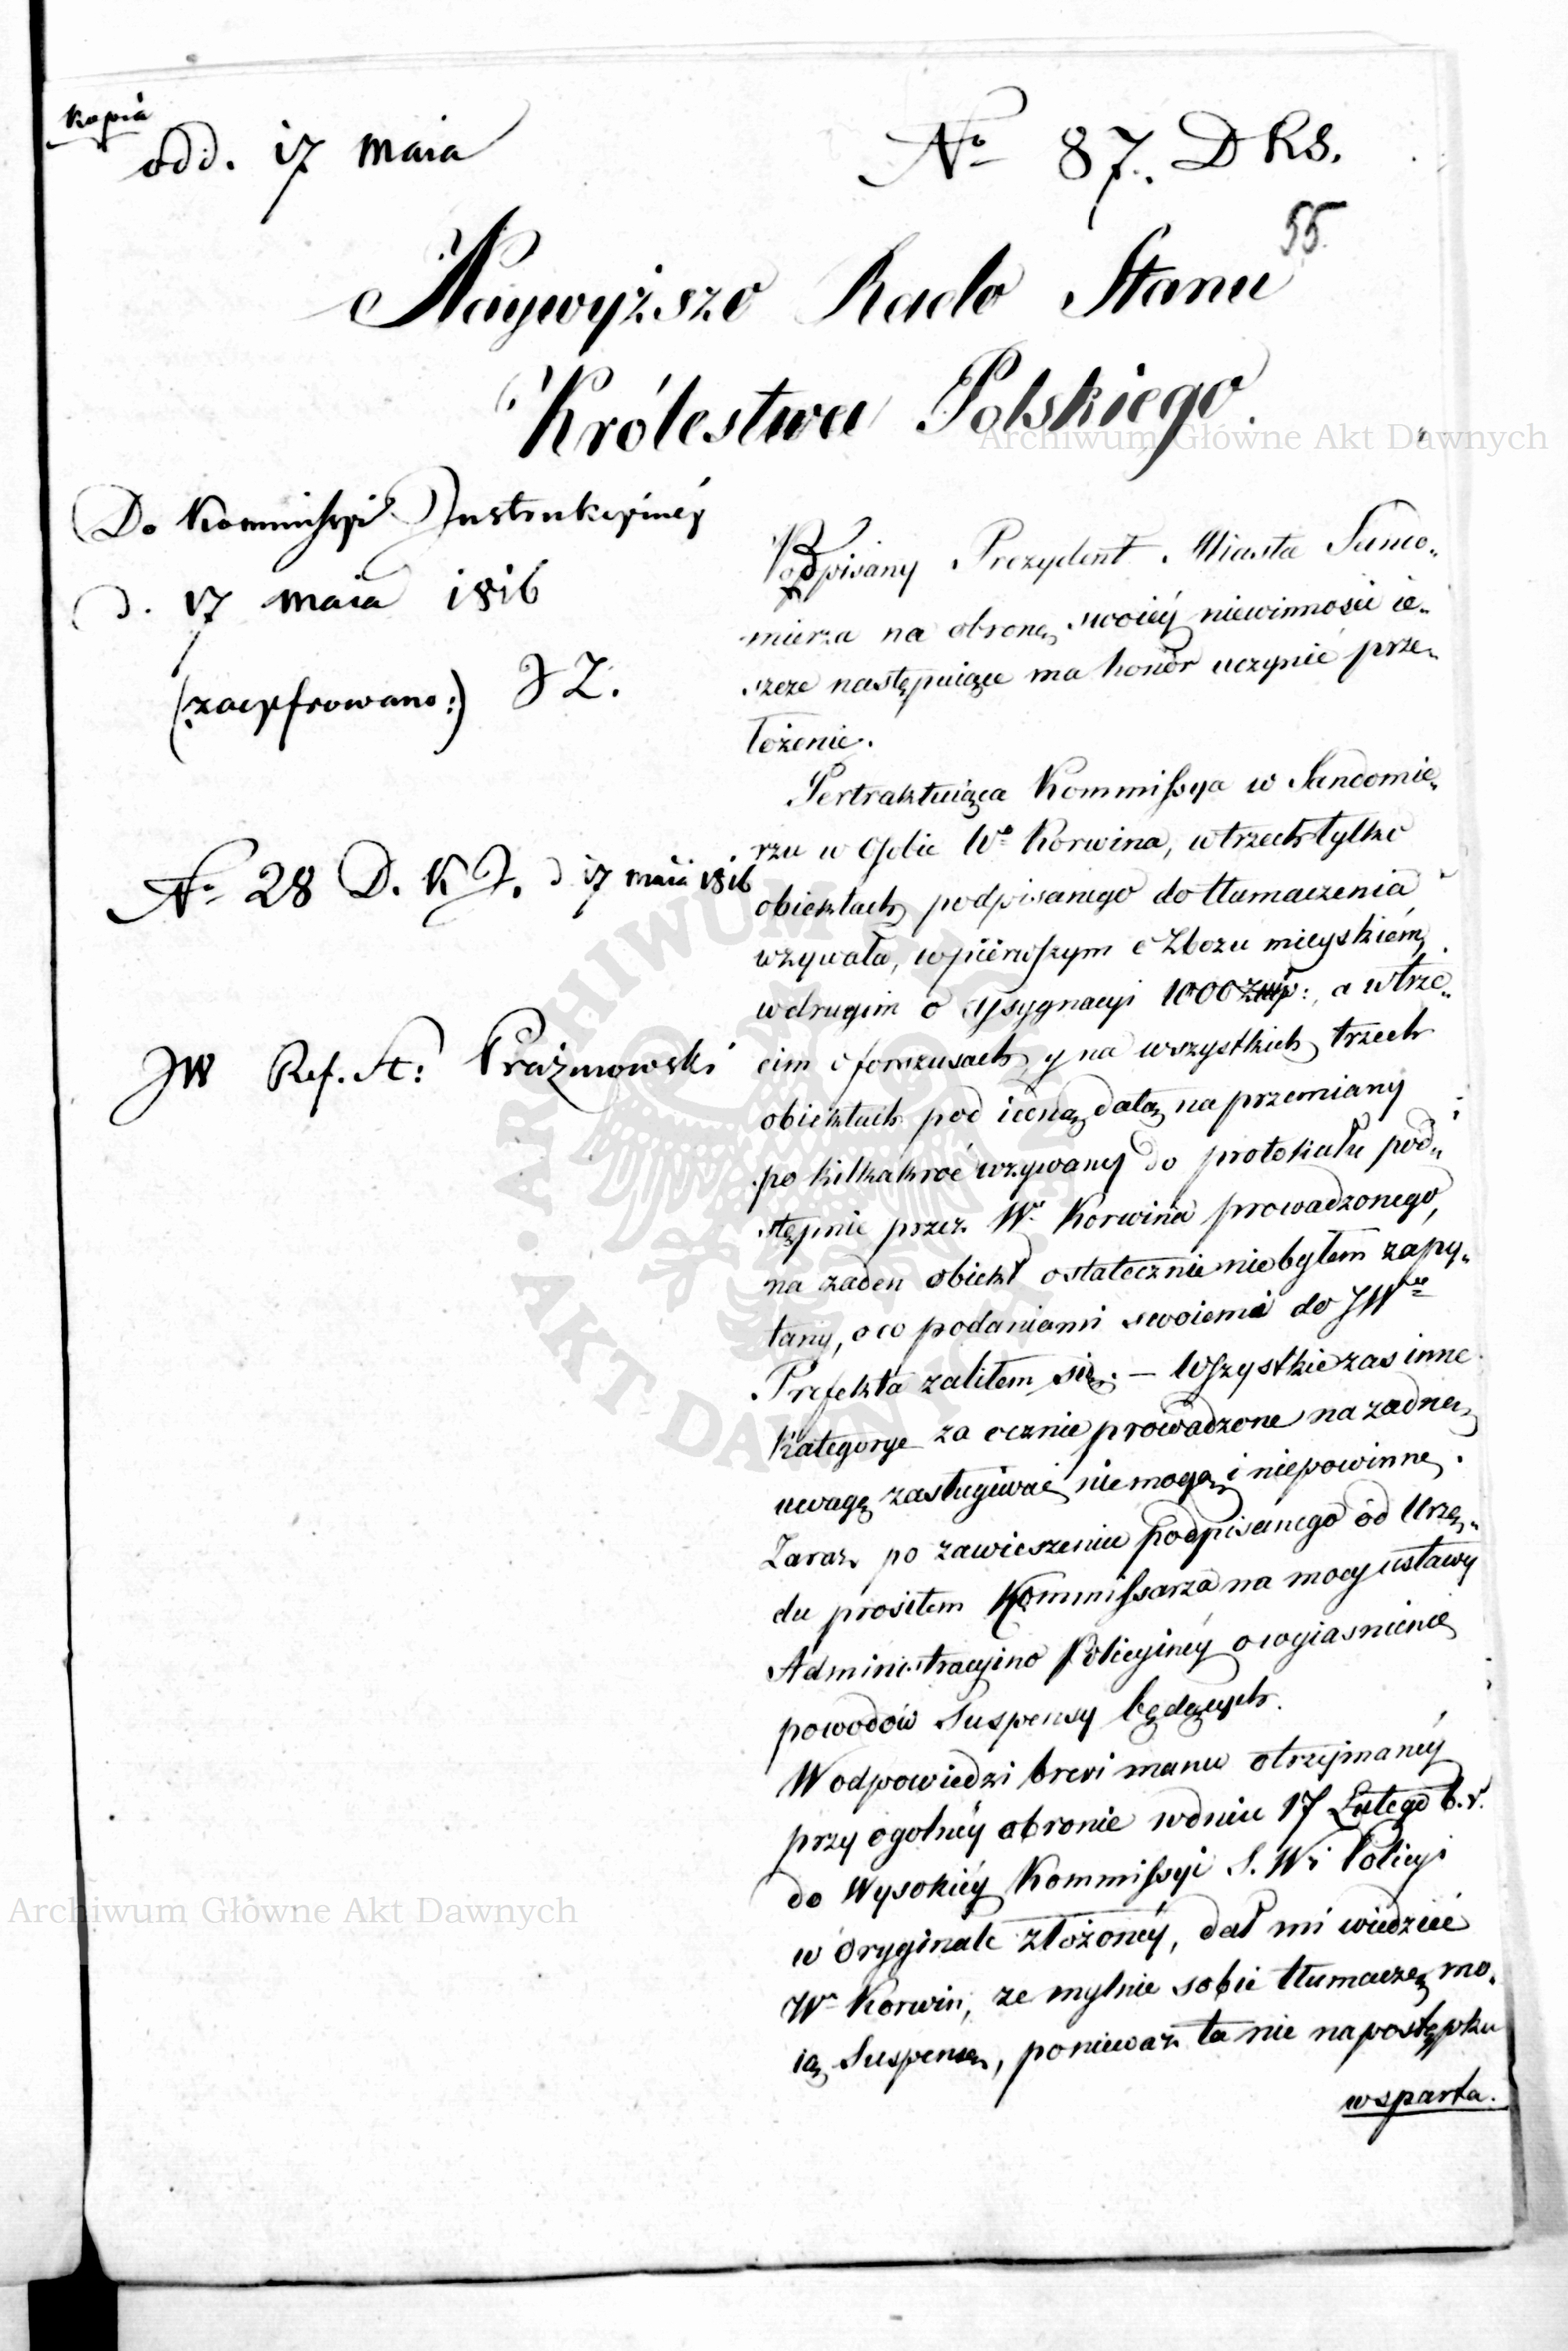 kopia
odd. 17 maia
No 87. D KS.
55.
Naywyższo Rado Stanu
Królestwa Polskiego.
Archiwum Główne Akt Dawnych
Do Kommissyi Instrukcyiney
d. 17 maia 1816
(zacyfrowano:) JZ.
No 28 D. K J. d 17 maia 1816
JW Ref. St: Prażmowski
Podpisany Prezydent Miasta Sando-
mierza na obronę swoiéy niewinnosci ie-
szcze następuiące ma honor uczynić prze-
łożenie.
Pertraktuiąca Kommissya w Sandomie-
rzu w Osobie Wo Korwina, w trzech tylko
obiektach podpisanego do tłumaczenia
wzywała, w piérwszym o Zbożu mieyskiém,
w drugim o Assygnacyi 1000 złp:, a w trze-
cim o forszusach, y na wszystkich trzech
obiektach pod iedną datą na przemiany
po kilkakroć wzywany do protokułu pod-
stępnie przez Wo Korwina prowadzonego,
na żaden obiekt ostatecznie nie byłem zapy-
tany, o co podaniami swoiemi do JWo
Prefekta żaliłem się. — Wszystkie zas inne
kategorye za ocznie prowadzone na żadną
uwagę zasługiwać nie mogą i niepowinne.
Zaraz po zawieszeniu podpisanego od Urzę-
du prosiłem Kommissarza na mocy ustawy
Administracyino Policyinéy o wyiasnienie
powodów Suspensy będących.
W odpowiedzi brevi manu otrzymanéy
przy ogolnéy obronie w dniu 17 Lutego b.r.
do Wysokiéy Kommissyi S. W i Policyi
w oryginale złożonéy, dał mi wiedzieć
Wo Korwin, że mylnie sobie tłumaczę mo-
ią Suspensę, ponieważ ta nie na postępku
wsparta.
Archiwum Główne Akt Dawnych
ARCHIWUM GŁÓWNE AKT DAWNYCH